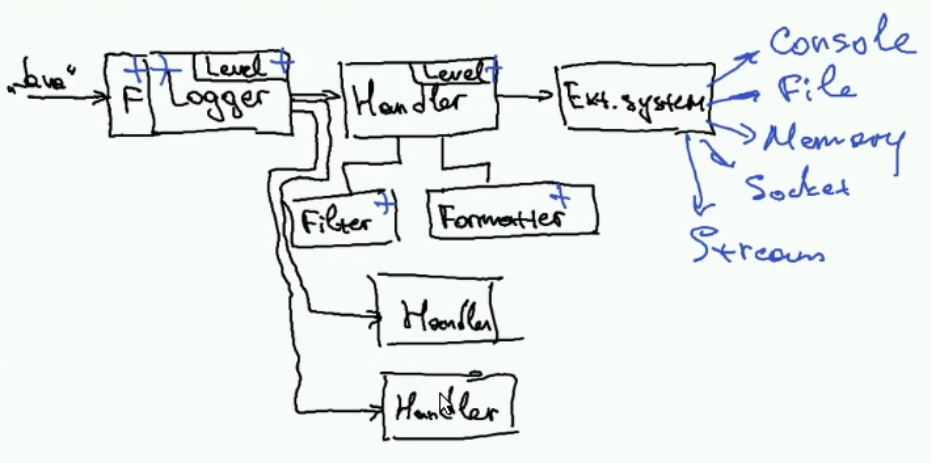 F
Level
Logger
Level
Handler
Ext. system
Console
File
Memory
Socket
Stream
Filter
Formatter
Handler
Handler